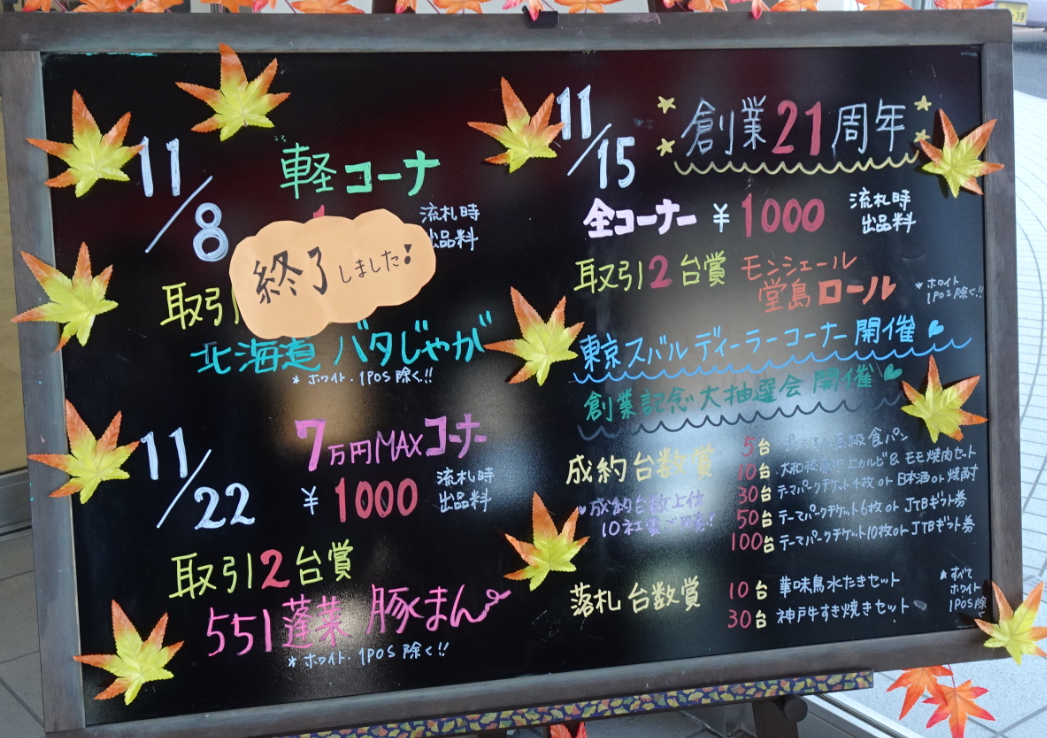 11/8
軽コーナ
流札時
出品料
終了しました!
取引
北海道 バタじゃが
* ホワイト・1POS 除く!!
11/22
7万円MAXコーナー
¥1000
流札時
出品料
取引2台賞
551蓬莱 豚まん
* ホワイト・1POS 除く!!
11/15
創業21周年
全コーナー ¥1000
流札時
出品料
取引2台賞 モンシェール
堂島ロール
* ホワイト
1POS除く!!
東京スバルディーラーコーナー開催
創業記念大抽選会開催
成約台数賞
成約台数上位
10社
5台 食パン
10台 大和 上カルビ&モモ焼肉セット
30台 テーマパークチケット4枚 or 日本酒 or 焼酎
50台 テーマパークチケット6枚 or JTBギフト券
100台 テーマパークチケット10枚 or JTBギフト券
落札台数賞
10台 華味鳥水たきセット
30台 神戸牛すき焼きセット
* すべて
ホワイト
1POS除